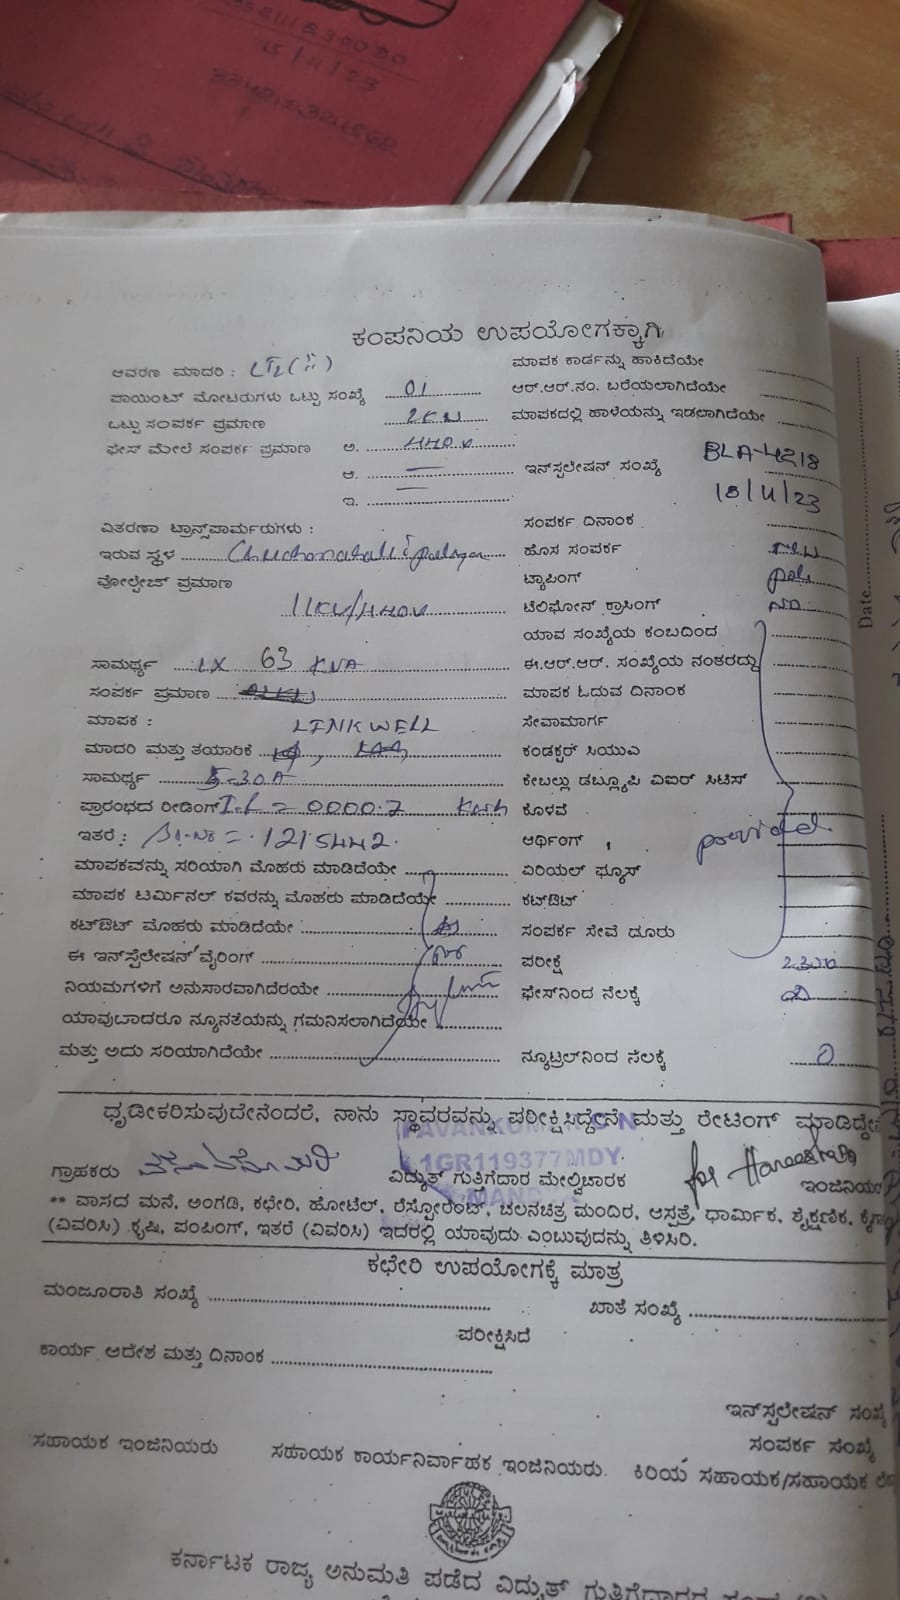 ಕಂಪನಿಯ ಉಪಯೋಗಕ್ಕಾಗಿ
ಆವರಣ ಮಾದರಿ :
ಮಾಪಕ ಕಾರ್ಡನ್ನು ಹಾಕಿದೆಯೇ
ಪಾಯಿಂಟ್ ಮೋಟರುಗಳು ಒಟ್ಟು ಸಂಖ್ಯೆ 01
ಆರ್.ಆರ್.ನಂ. ಬರೆಯಲಾಗಿದೆಯೇ
ಒಟ್ಟು ಸಂಪರ್ಕ ಪ್ರಮಾಣ 2KW
ಮಾಪಕದಲ್ಲಿ ಹಾಳೆಯನ್ನು ಇಡಲಾಗಿದೆಯೇ
ಫೇಸ್ ಮೇಲೆ ಸಂಪರ್ಕ ಪ್ರಮಾಣ ಅ. 440V
ಆ.
ಇನ್‌ಸ್ಟಲೇಷನ್ ಸಂಖ್ಯೆ BLA-4218
ಇ.
18/11/23
ವಿತರಣಾ ಟ್ರಾನ್ಸ್‌ಪಾರ್ಮರುಗಳು :
ಸಂಪರ್ಕ ದಿನಾಂಕ
ಇರುವ ಸ್ಥಳ
ಹೊಸ ಸಂಪರ್ಕ new
ವೋಲ್ಟೇಜ್ ಪ್ರಮಾಣ 11KV/440V
ಟ್ಯಾಪಿಂಗ್ pole
ಟೆಲಿಫೋನ್ ಕ್ರಾಸಿಂಗ್ no
ಯಾವ ಸಂಖ್ಯೆಯ ಕಂಬದಿಂದ
ಸಾಮರ್ಥ್ಯ 1X 63 KVA
ಈ.ಆರ್.ಆರ್. ಸಂಖ್ಯೆಯ ನಂತರದ್ದು
ಸಂಪರ್ಕ ಪ್ರಮಾಣ
ಮಾಪಕ ಓದುವ ದಿನಾಂಕ
ಮಾಪಕ : LINKWELL
ಸೇವಾಮಾರ್ಗ
ಮಾದರಿ ಮತ್ತು ತಯಾರಿಕೆ
ಕಂಡಕ್ಟರ್ ಸಿಯುಎ
ಸಾಮರ್ಥ್ಯ 5-30A
ಕೇಬಲ್ಲು ಡಬ್ಲ್ಯೂಪಿ ವಿಐರ್ ಸಿಟಿಸ್
ಪ್ರಾರಂಭದ ರೀಡಿಂಗ್ I.R = 0000.7 Kwh
ಕೊಳವೆ
ಇತರೆ : Sl.No = 1215442.
ಆರ್ಥಿಂಗ್ provided
ಮಾಪಕವನ್ನು ಸರಿಯಾಗಿ ಮೊಹರು ಮಾಡಿದೆಯೇ
ಏರಿಯಲ್ ಫ್ಯೂಸ್
ಮಾಪಕ ಟರ್ಮಿನಲ್ ಕವರನ್ನು ಮೊಹರು ಮಾಡಿದೆಯೇ
ಕಟ್‌ಔಟ್
ಕಟ್‌ಔಟ್ ಮೊಹರು ಮಾಡಿದೆಯೇ
ಸಂಪರ್ಕ ಸೇವೆ ದೂರು
ಈ ಇನ್‌ಸ್ಟಲೇಷನ್ ವೈರಿಂಗ್
ಪರೀಕ್ಷೆ 230V
ನಿಯಮಗಳಿಗೆ ಅನುಸಾರವಾಗಿದೆರಯೇ
ಫೇಸ್‌ನಿಂದ ನೆಲಕ್ಕೆ
ಯಾವುದಾದರೂ ನ್ಯೂನತೆಯನ್ನು ಗಮನಿಸಲಾಗಿದೆಯೇ
ಮತ್ತು ಅದು ಸರಿಯಾಗಿದೆಯೇ
ನ್ಯೂಟ್ರಲ್‌ನಿಂದ ನೆಲಕ್ಕೆ 0
ಧೃಡೀಕರಿಸುವುದೇನೆಂದರೆ, ನಾನು ಸ್ಥಾವರವನ್ನು ಪರೀಕ್ಷಿಸಿದ್ದೇನೆ ಮತ್ತು ರೇಟಿಂಗ್ ಮಾಡಿದ್ದೇನೆ
PAVANKUMAR G N
1GR119377MDY
MANDYA
ಗ್ರಾಹಕರು
ವಿದ್ಯುತ್ ಗುತ್ತಿಗೆದಾರ ಮೇಲ್ವಿಚಾರಕ
for
ಇಂಜಿನಿಯರ
** ವಾಸದ ಮನೆ, ಅಂಗಡಿ, ಕಛೇರಿ, ಹೋಟೆಲ್, ರೆಸ್ಟೋರೆಂಟ್, ಚಲನಚಿತ್ರ ಮಂದಿರ, ಆಸ್ಪತ್ರೆ, ಧಾರ್ಮಿಕ, ಶೈಕ್ಷಣಿಕ,
(ವಿವರಿಸಿ) ಕೃಷಿ, ಪಂಪಿಂಗ್, ಇತರೆ (ವಿವರಿಸಿ) ಇದರಲ್ಲಿ ಯಾವುದು ಎಂಬುವುದನ್ನು ತಿಳಿಸಿರಿ.
ಕಛೇರಿ ಉಪಯೋಗಕ್ಕೆ ಮಾತ್ರ
ಮಂಜೂರಾತಿ ಸಂಖ್ಯೆ
ಖಾತೆ ಸಂಖ್ಯೆ
ಪರೀಕ್ಷಿಸಿದೆ
ಕಾರ್ಯ ಆದೇಶ ಮತ್ತು ದಿನಾಂಕ
ಇನ್‌ಸ್ಟಲೇಷನ್ ಸಂಖ್ಯೆ
ಸಂಪರ್ಕ ಸಂಖ್ಯೆ
ಸಹಾಯಕ ಇಂಜಿನಿಯರು ಸಹಾಯಕ ಕಾರ್ಯನಿರ್ವಾಹಕ ಇಂಜಿನಿಯರು. ಕಿರಿಯ ಸಹಾಯಕ/ಸಹಾಯಕ
ಕರ್ನಾಟಕ ರಾಜ್ಯ ಅನುಮತಿ ಪಡೆದ ವಿದ್ಯುತ್ ಗುತ್ತಿಗೆದಾರರ ಸಂಘ
Date